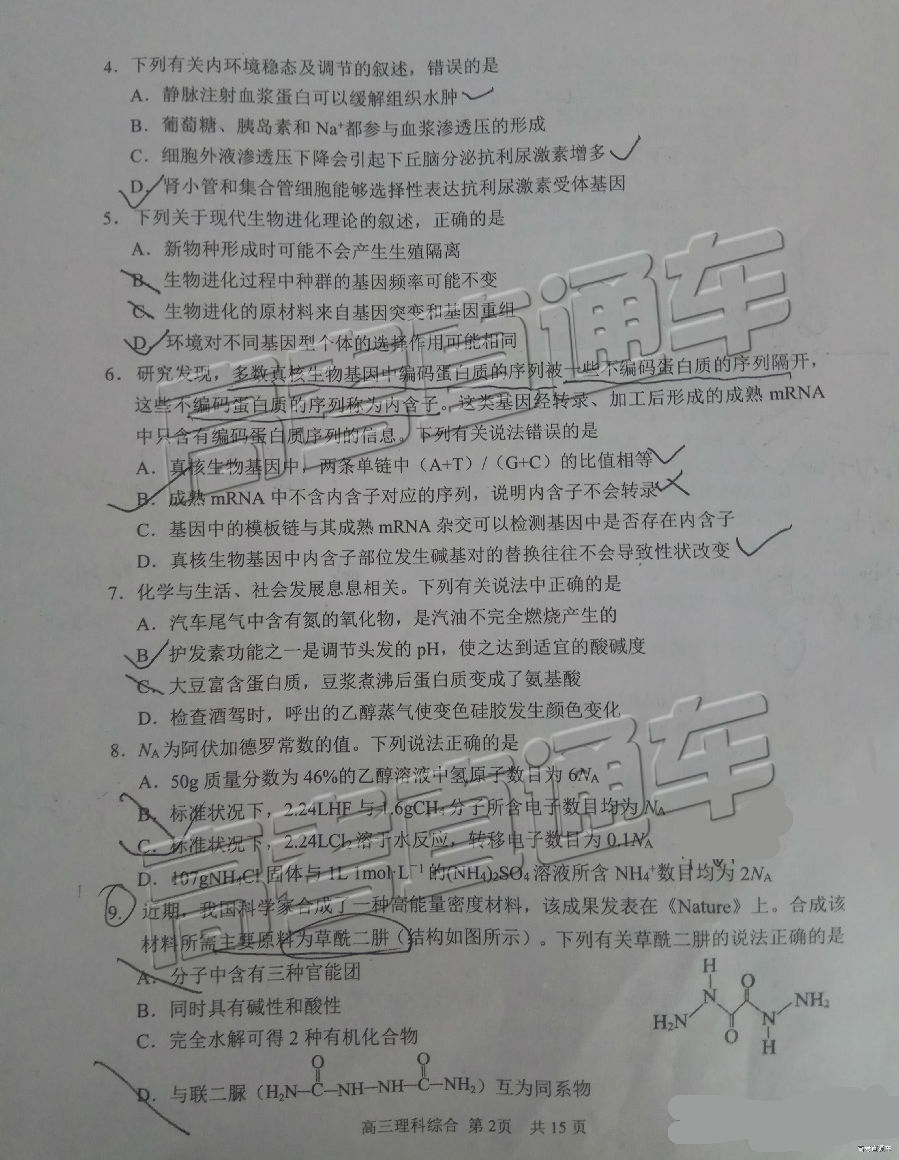 4．下列有关内环境稳态及调节的叙述，错误的是
A．静脉注射血浆蛋白可以缓解组织水肿
B．葡萄糖、胰岛素和 Na⁺都参与血浆渗透压的形成
C．细胞外液渗透压下降会引起下丘脑分泌抗利尿激素增多
D．肾小管和集合管细胞能够选择性表达抗利尿激素受体基因
5．下列关于现代生物进化理论的叙述，正确的是
A．新物种形成时可能不会产生生殖隔离
B．生物进化过程中种群的基因频率可能不变
C．生物进化的原材料来自基因突变和基因重组
D．环境对不同基因型个体的选择作用可能相同
6．研究发现，多数真核生物基因中编码蛋白质的序列被一些不编码蛋白质的序列隔开，
这些不编码蛋白质的序列称为内含子。这类基因经转录、加工后形成的成熟 mRNA
中只含有编码蛋白质序列的信息。下列有关说法错误的是
A．真核生物基因中，两条单链中（A+T）/（G+C）的比值相等
B．成熟 mRNA 中不含内含子对应的序列，说明内含子不会转录
C．基因中的模板链与其成熟 mRNA 杂交可以检测基因中是否存在内含子
D．真核生物基因中内含子部位发生碱基对的替换往往不会导致性状改变
7．化学与生活、社会发展息息相关。下列有关说法中正确的是
A．汽车尾气中含有氮的氧化物，是汽油不完全燃烧产生的
B．护发素功能之一是调节头发的 pH，使之达到适宜的酸碱度
C．大豆富含蛋白质，豆浆煮沸后蛋白质变成了氨基酸
D．检查酒驾时，呼出的乙醇蒸气使变色硅胶发生颜色变化
8．NA为阿伏加德罗常数的值。下列说法正确的是
A．50g 质量分数为 46%的乙醇溶液中氢原子数目为 6NA
B．标准状况下，2.24LHF 与 1.6gCH₄分子所含电子数目均为 NA
C．标准状况下，2.24LCl₂溶于水反应，转移电子数目为 0.1NA
D．107gNH₄Cl 固体与 1L 1mol·L⁻¹的(NH₄)₂SO₄溶液所含 NH₄⁺数目均为 2NA
9．近期，我国科学家合成了一种高能量密度材料，该成果发表在《Nature》上。合成该
材料所需主要原料为草酰二肼（结构如图所示）。下列有关草酰二肼的说法正确的是
A．分子中含有三种官能团
B．同时具有碱性和酸性
C．完全水解可得 2 种有机化合物
H
N
O
NH₂
H₂N
O
N
H
O O
D．与联二脲（H₂N—C—NH—NH—C—NH₂）互为同系物
高三理科综合 第 2页 共 15 页
高考直通车
高考直通车
高考直通车